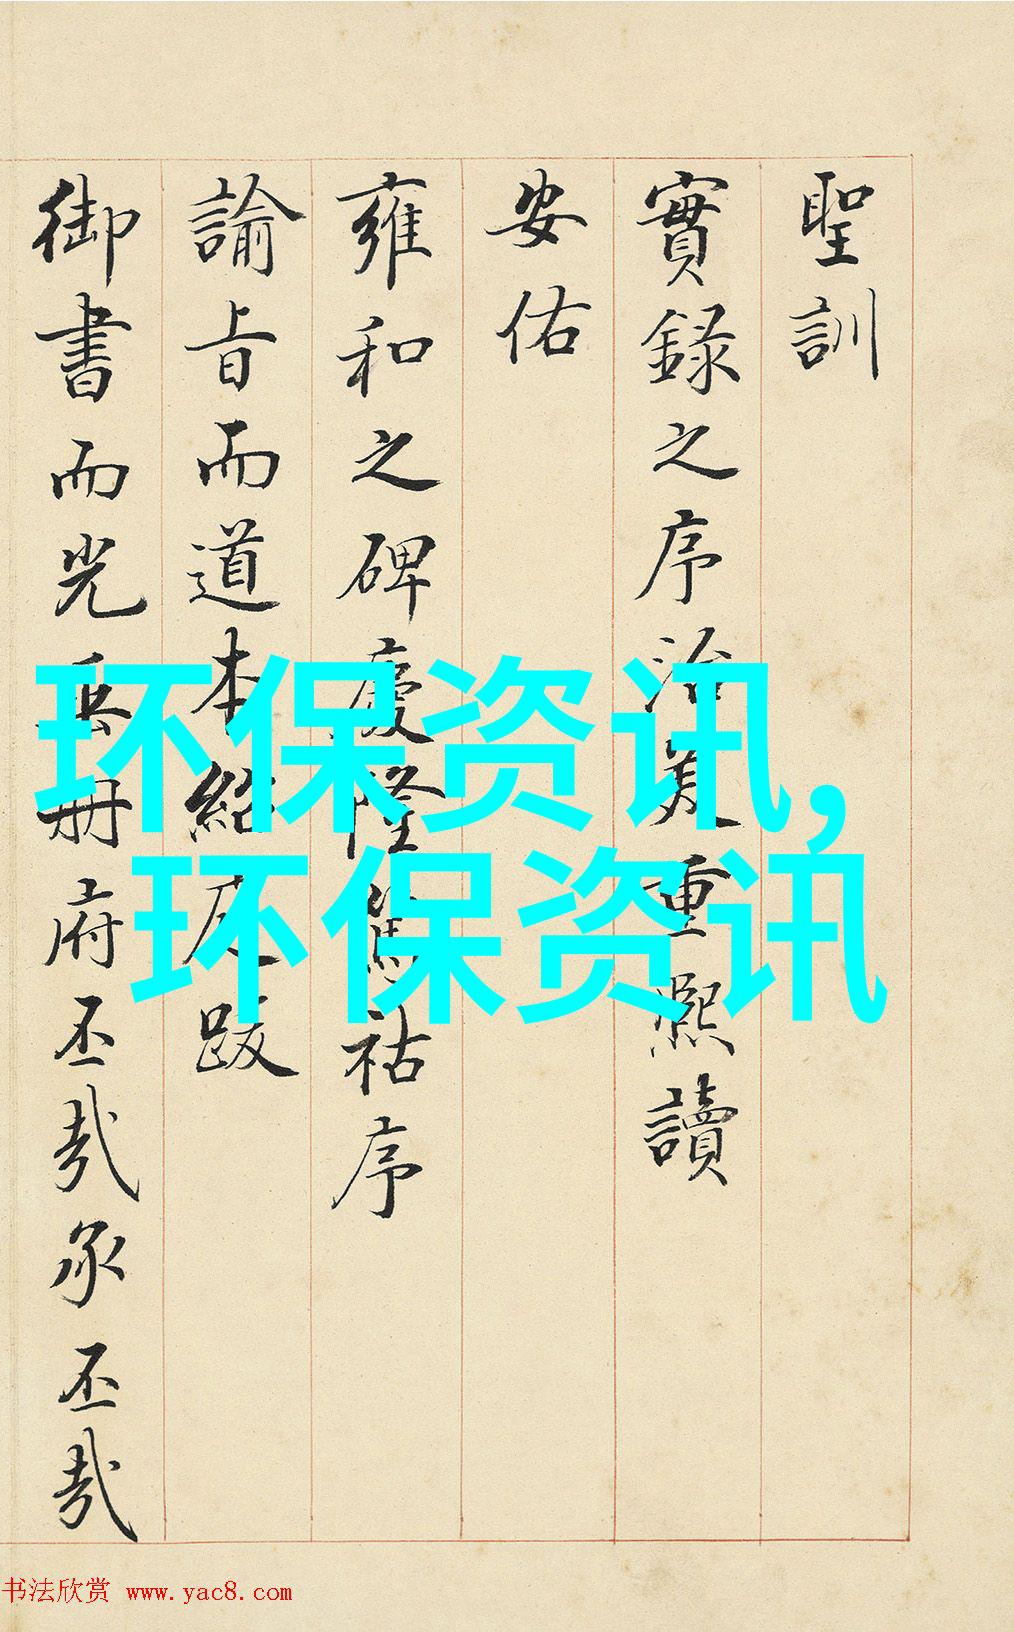 聖訓
實錄之序治美重熙讀
安佑
雍和之碑慶隆舊祜序
諭旨而道本紹庭跋
御書而光岳册府丕哉承丕哉
环保资讯,
环保资讯
书法欣赏 www.yac8.com